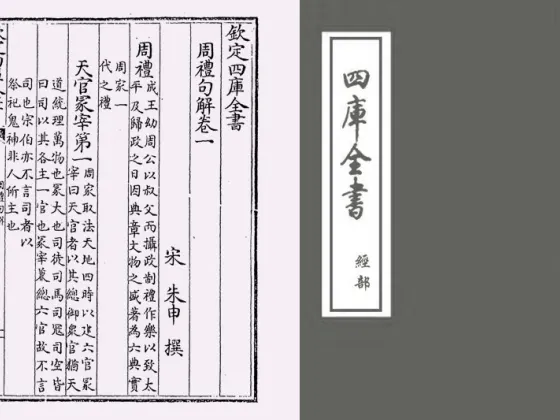 欽定四庫全書
周禮句解卷一
宋 朱申 撰
周禮
成王幼周公以叔父而攝政制禮作樂以致太
平及歸政之日因典章文物之盛著為六典實
周家一
代之禮
天官冢宰第一
周家取法天地四時以建六官冢
宰曰天官者以其總御衆官猶天
道統理萬物也冢大也司徒司馬司冦司空皆
曰司以其各主一官也冢宰兼總六官故不言
司也宗伯亦不言司者以
祭祀鬼神非人所主也
四庫全書
經部